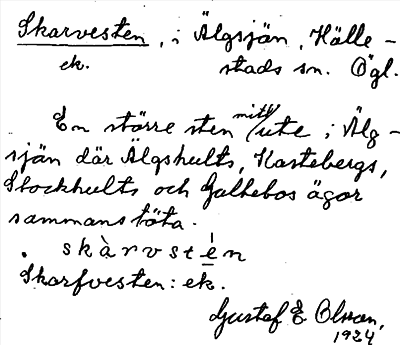 Skarvesten, i Älgsjän, Hälle-
ek. stads sn. Ögl.
En större sten mitt ute i Älg-
sjän där Älgshults, Kastebergs,
Stockhults och Galhebos ägor
sammanstöta.
skàrvstén
Skarfvesten: ek.
Gustaf E Olsson,
1924